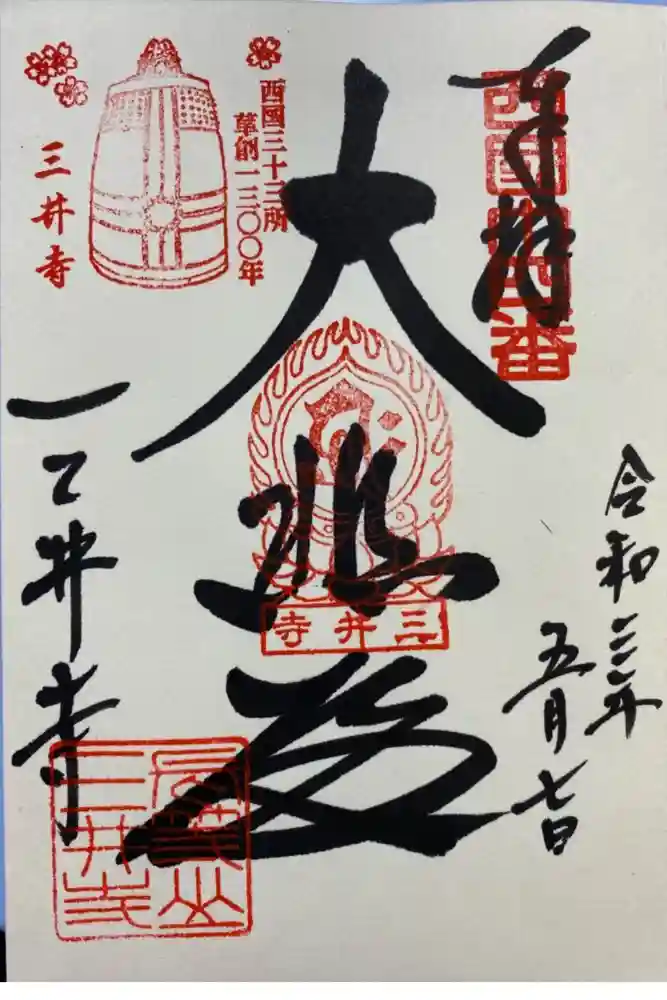 奉拝
西国第十四番
令和三年
五月七日
大悲殿
三井寺
西国三十三所
草創一三〇〇年
三井寺
三井寺
長等山
三井寺